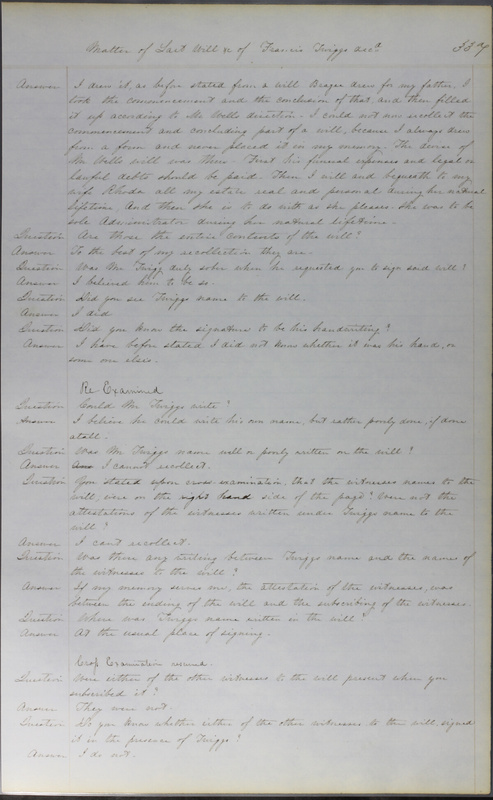 Matter of Last Will &c of Francis Twiggs decd 
Answer I drew it, as before stated from a will Brager drew for my father. I
took the commencement and the conclusion of that and then filled
it up according to Mr Wells direction. I could not now recollect the
commencement and concluding part of a will, because I always drew
from a form and never placed it in my memory. The sense of
Mr Wells will was this. First his funeral expenses and legal or
lawful debts should be paid. Then I will and bequeath to my
wife Rhoda all my estate real and personal during her natural
lifetime. And then she is to do with as she pleases. She was to be
sole Administrator during her natural lifetime.
Question Are those the entire contents of the will?
Answer To the best of my recollection they are.
Question Was Mr Twigg duly sober when he requested you to sign said will?
Answer I believed him to be so.
Question Did you see Twiggs name to the will.
Answer I did
Question Did you know the signature to be his handwriting?
Answer I have before stated I did not know whether it was his hand, or
some one elses.
Re Examined
Question Could Mr Twiggs write?
Answer I believe he could write his own name, but rather poorly done, if done
atall.
Question Was Mr Twiggs name well or poorly written on the will?
Answer I cannot recollect.
Question You stated upon cross-examination, that the witnesses names to the
will, were on the right hand side of the page? Were not the
attestations of the witnesses written under Twiggs name to the
will?
Answer I cant recollect.
Question Was there any writing between Twiggs name and the names of
the witnesses to the will?
Answer If my memory serves me, the attestation of the witnesses, was
between the ending of the will and the subscribing of the witnesses.
Question Where was Twiggs name written in the will?
Answer At the usual place of signing.
Cross Examination resumed.
Question Were either of the other witnesses to the will present when you
subscribed it?
Answer They were not.
Question Do you know whether either of the other witnesses to the will, signed
it in the presence of Twiggs?
Answer I do not.